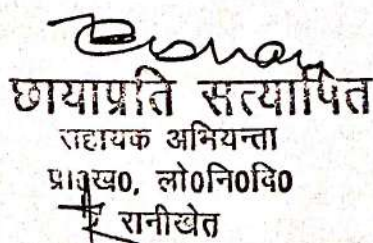 छायाप्रति सत्यापित
सहायक अभियन्ता
प्रा0ख0, लो0नि0वि0
रानीखेत